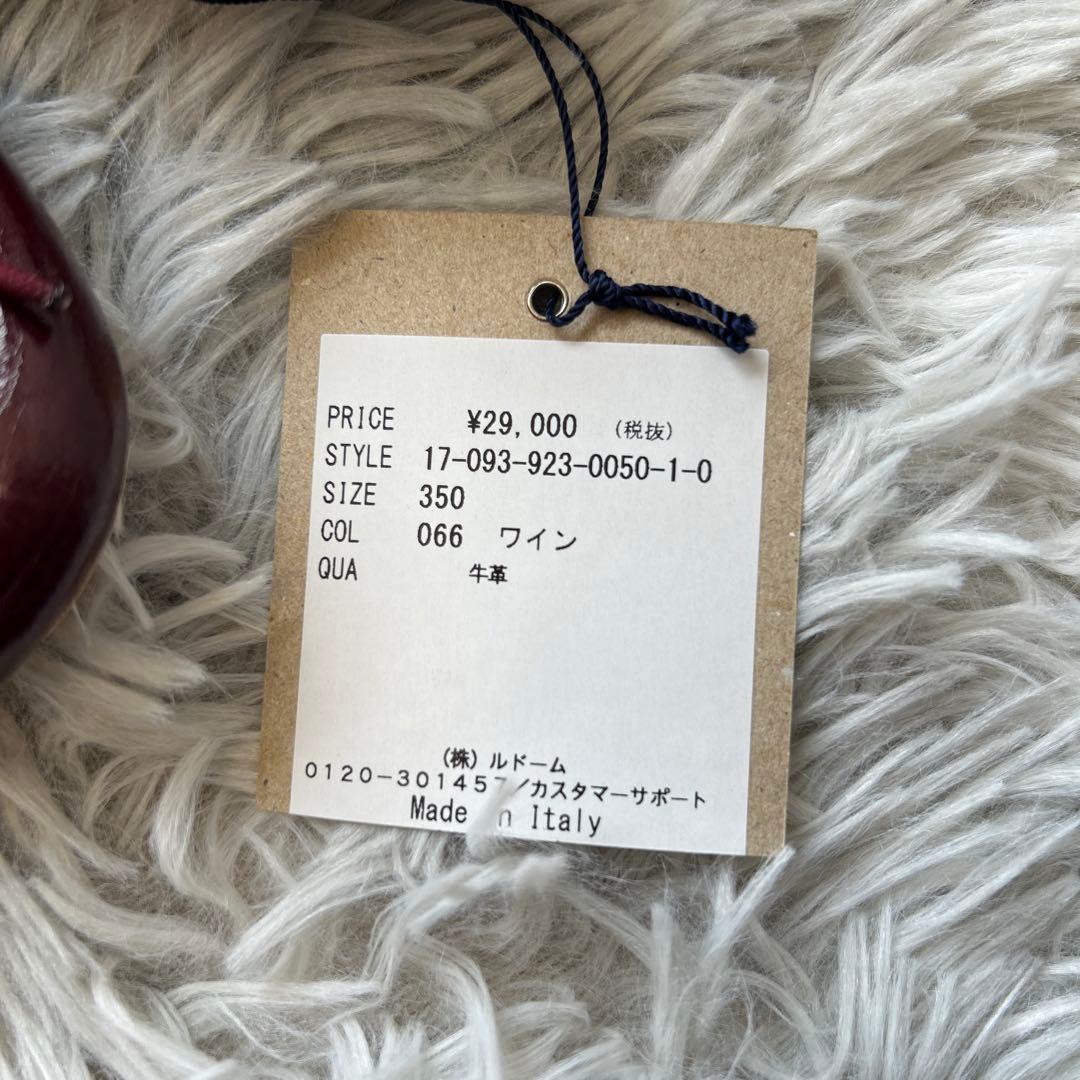 PRICE ¥29,000 (税抜)
STYLE 17-093-923-0050-1-0
SIZE 350
COL 066 ワイン
QUA 牛革
(株)ルドーム
0120-301457/カスタマーサポート
Made in Italy